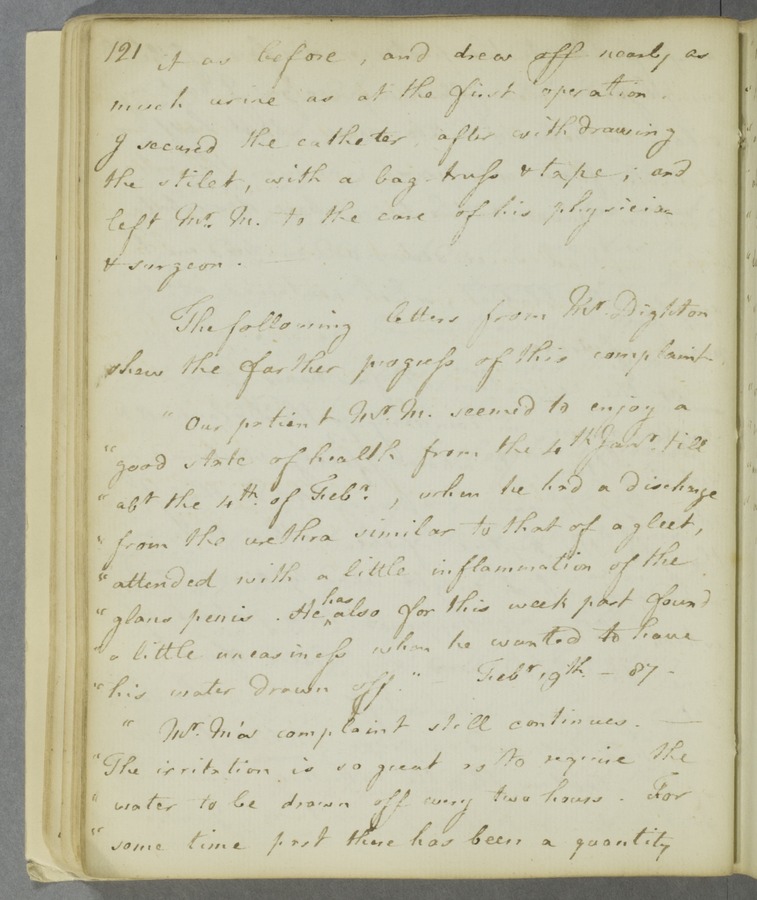 121 it as before, and drew off nearly as
much urine as at the first operation.
I secured the catheter, after withdrawing
the stilet, with a bag-truss & tape; and
left Mr. M. to the care of his physician
& surgeon. —
The following letters from Mr. Dighton
shew the farther progress of this complaint
" Our patient Mr. M. seemed to enjoy a
" good state of health from the 4th Janr. till
" abt the 4th. of Febr., when he had a discharge
" from the urethra similar to that of a gleet,
" attended with a little inflammation of the
" glans penis. He has also for this week past found
" a little uneasiness when he wanted to have
" his water drawn off." — Febr. 19th. – 87 –
" Mr. M's complaint still continues. —
" The irritation is so great as to require the
" water to be drawn off every two hours. For
" some time past there has been a quantity